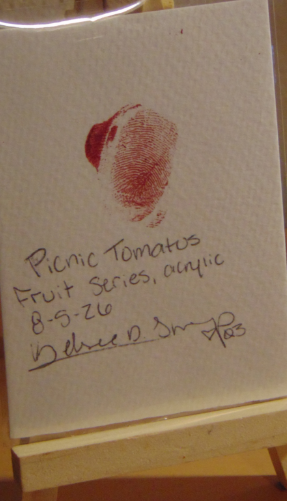 Picnic Tomatos
Fruit Series, acrylic
8-5-26
D